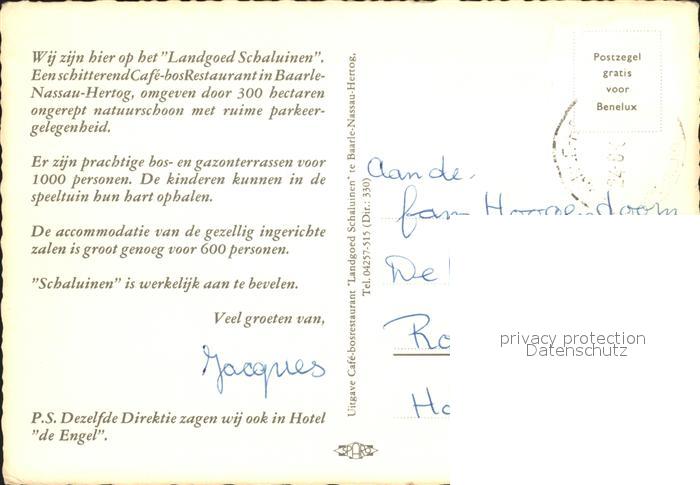 Wij zijn hier op het "Landgoed Schaluinen".
Een schitterend Café-bosRestaurant in Baarle-
Nassau-Hertog, omgeven door 300 hectaren
ongerept natuurschoon met ruime parkeer-
gelegenheid.
Er zijn prachtige bos- en gazonterrassen voor
1000 personen. De kinderen kunnen in de
speeltuin hun hart ophalen.
De accommodatie van de gezellig ingerichte
zalen is groot genoeg voor 600 personen.
"Schaluinen" is werkelijk aan te bevelen.
Veel groeten van,
Jacques
P.S. Dezelfde Direktie zagen wij ook in Hotel
"de Engel".
Uitgave Café-bosrestaurant "Landgoed Schaluinen" te Baarle-Nassau-Hertog.
Tel. 04257-515 (Dir.: 330)
SPARO
Postzegel
gratis
voor
Benelux
Aan de
fam Hoogendoorn
De
Ro
Ho
privacy protection
Datenschutz